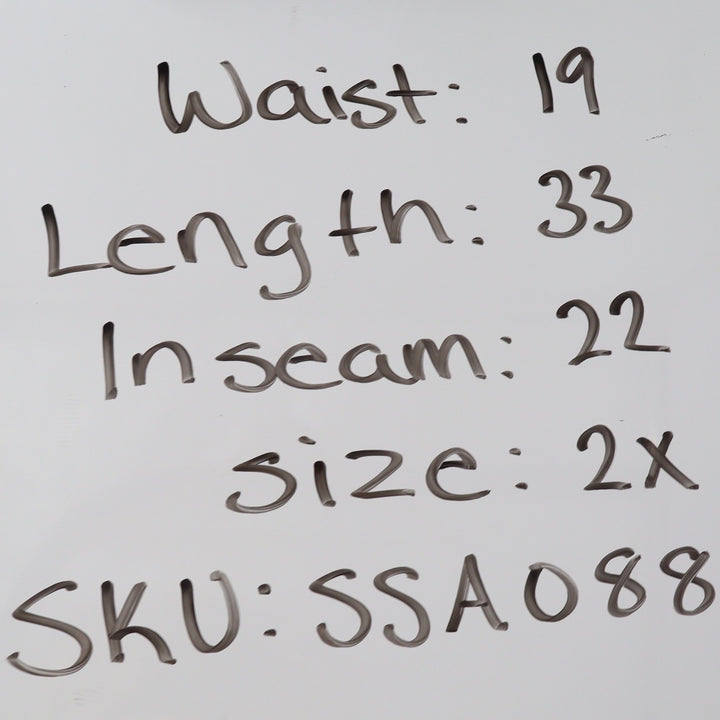 Waist: 19
Length: 33
Inseam: 22
size: 2x
SKU: SSA088